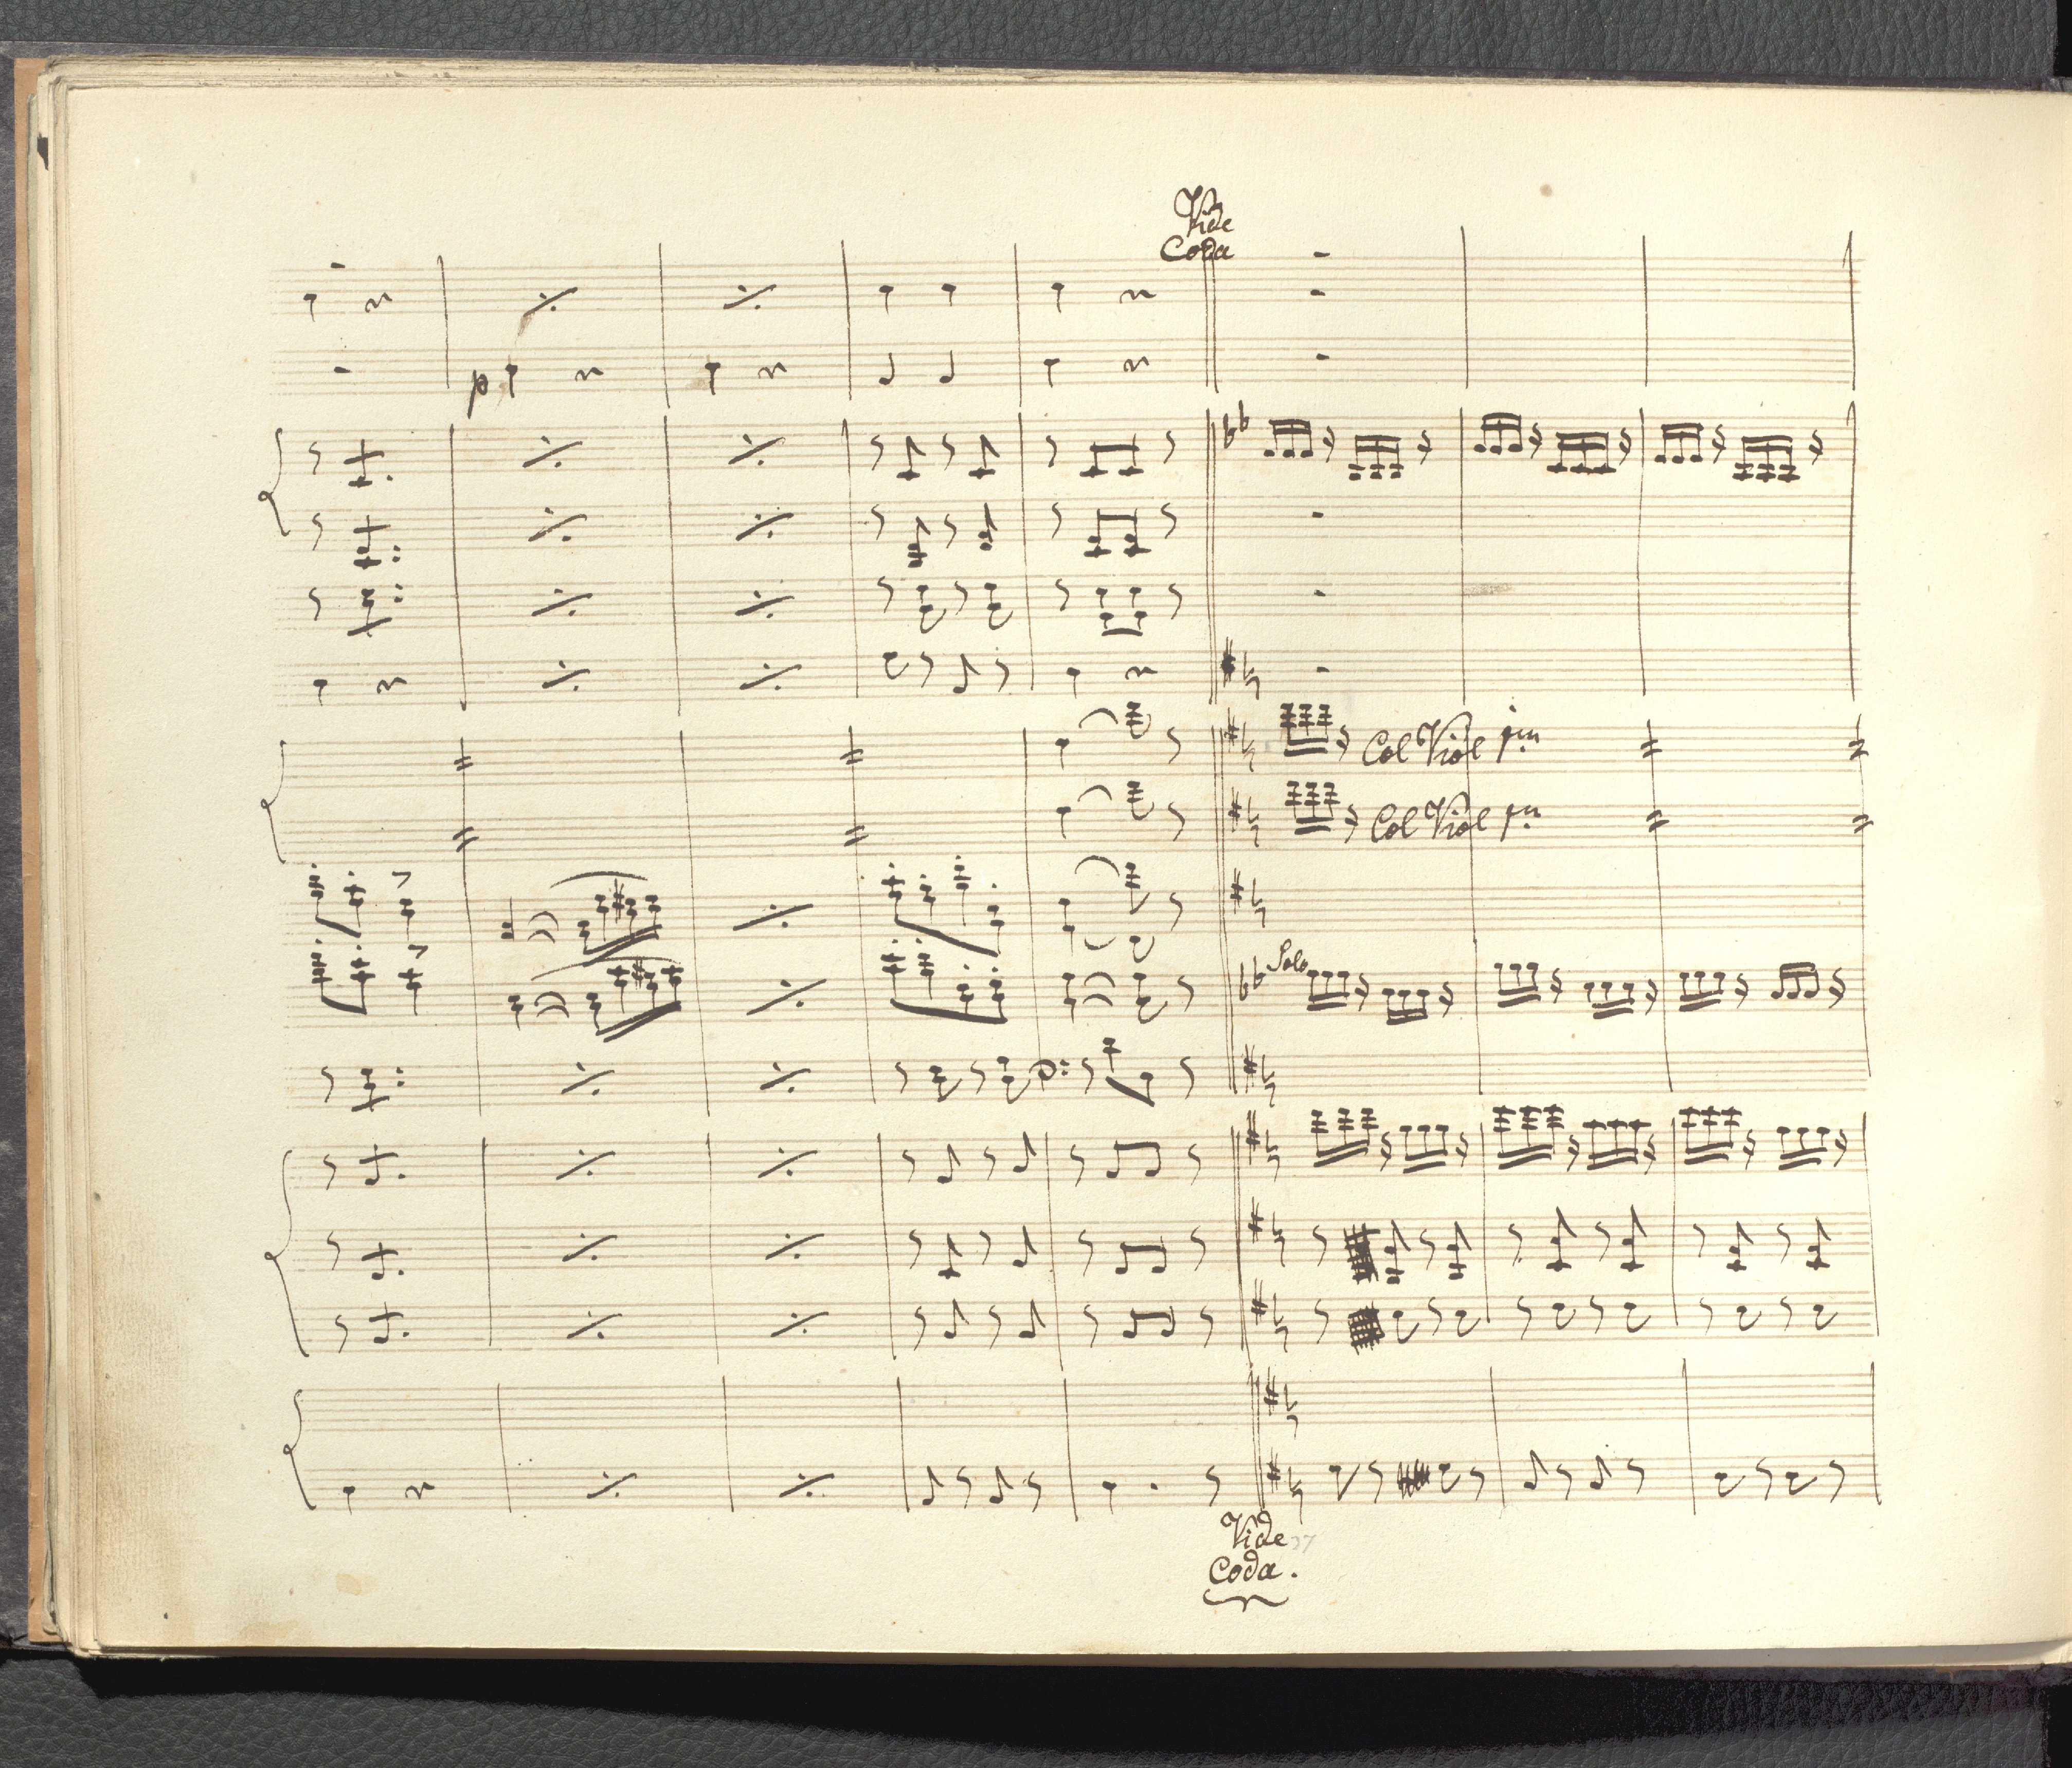 Vide
Coda
p
Col Viol pmo
Col Viol pmo
Solo
Vide
Coda.